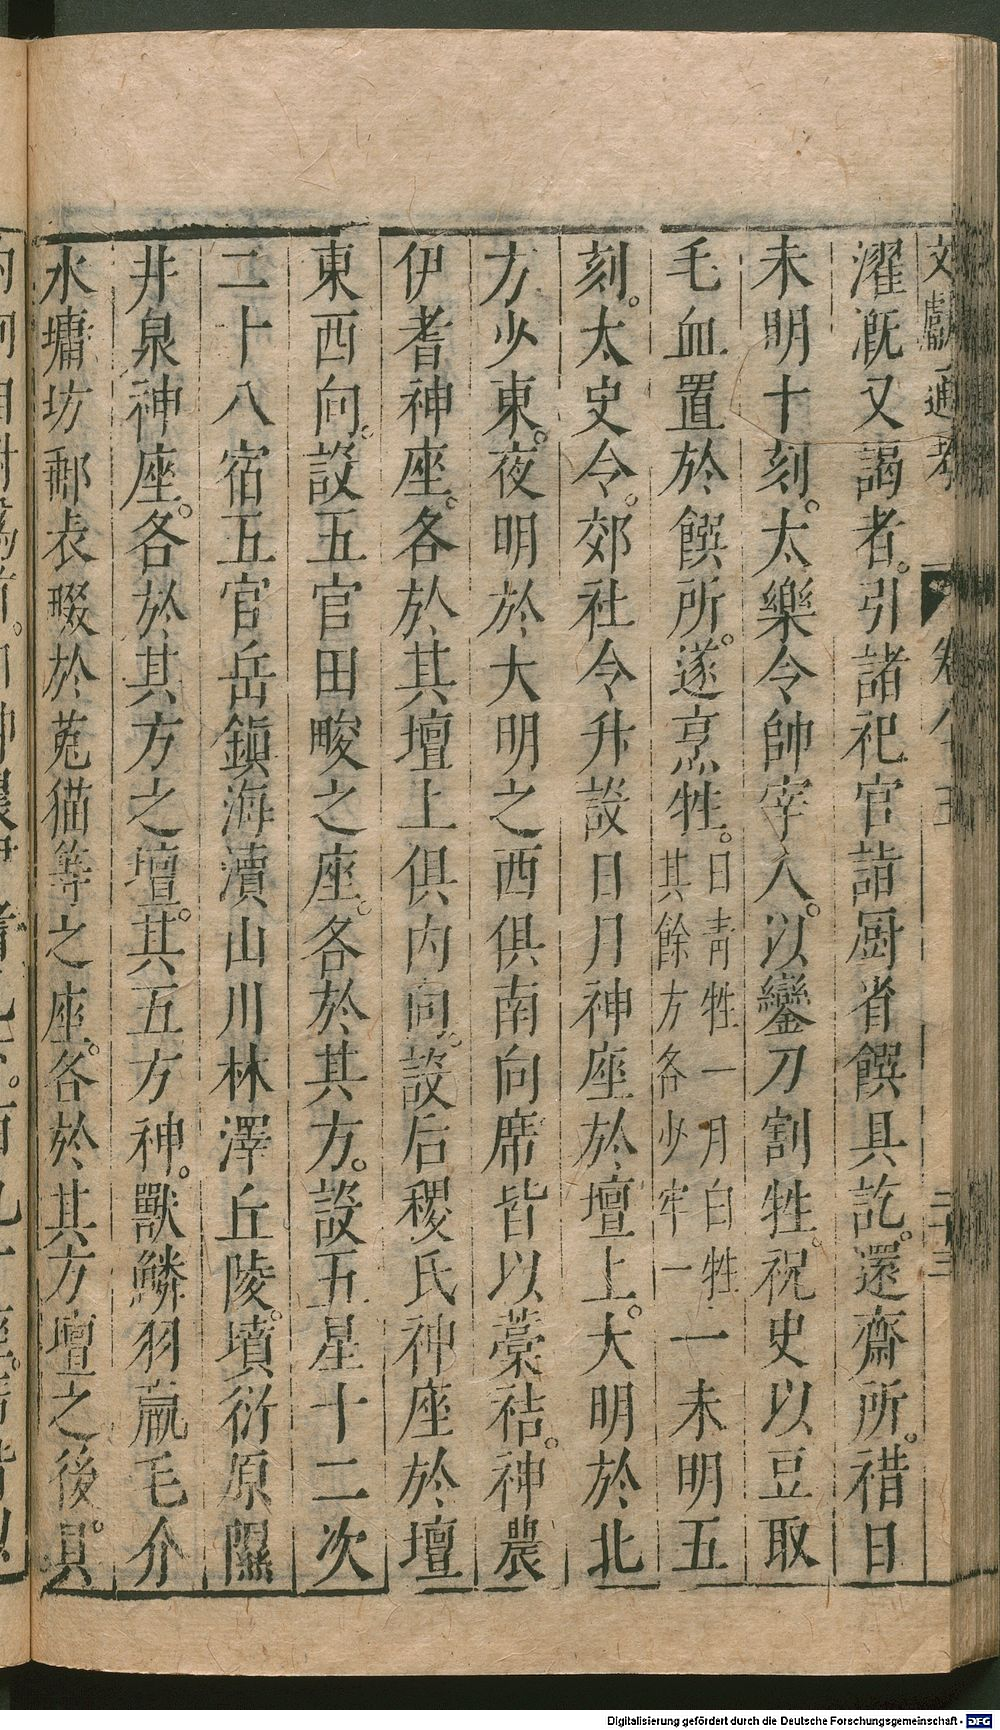 濯漑又謁者。引諸祀官詣厨省饌具訖。還齋所。禣日
未明十刻。太樂令帥宰人。以鑾刀割牲。祝史以豆取
毛血置於饌所。遂烹牲。日青牲一月白牲一其餘方各少牢一未明五
刻。太史令。郊社令升設日月神座於壇上。大明於北
方少東。夜明於大明之西俱南向席皆以藁秸。神農
伊耆神座。各於其壇上俱内向。設后稷氏神座於壇
東西向。設五官田畯之座。各於其方。設五星十二次
二十八宿五官岳鎮海瀆山川林澤丘陵。墳衍原隰
井泉神座。各於其方之壇。其五方神。獸鱗羽蠃毛介
水墉坊郵表畷於菟猫等之座。各於其方壇之後。具
Digitalisierung gefördert durch die Deutsche Forschungsgemeinschaft - DFG